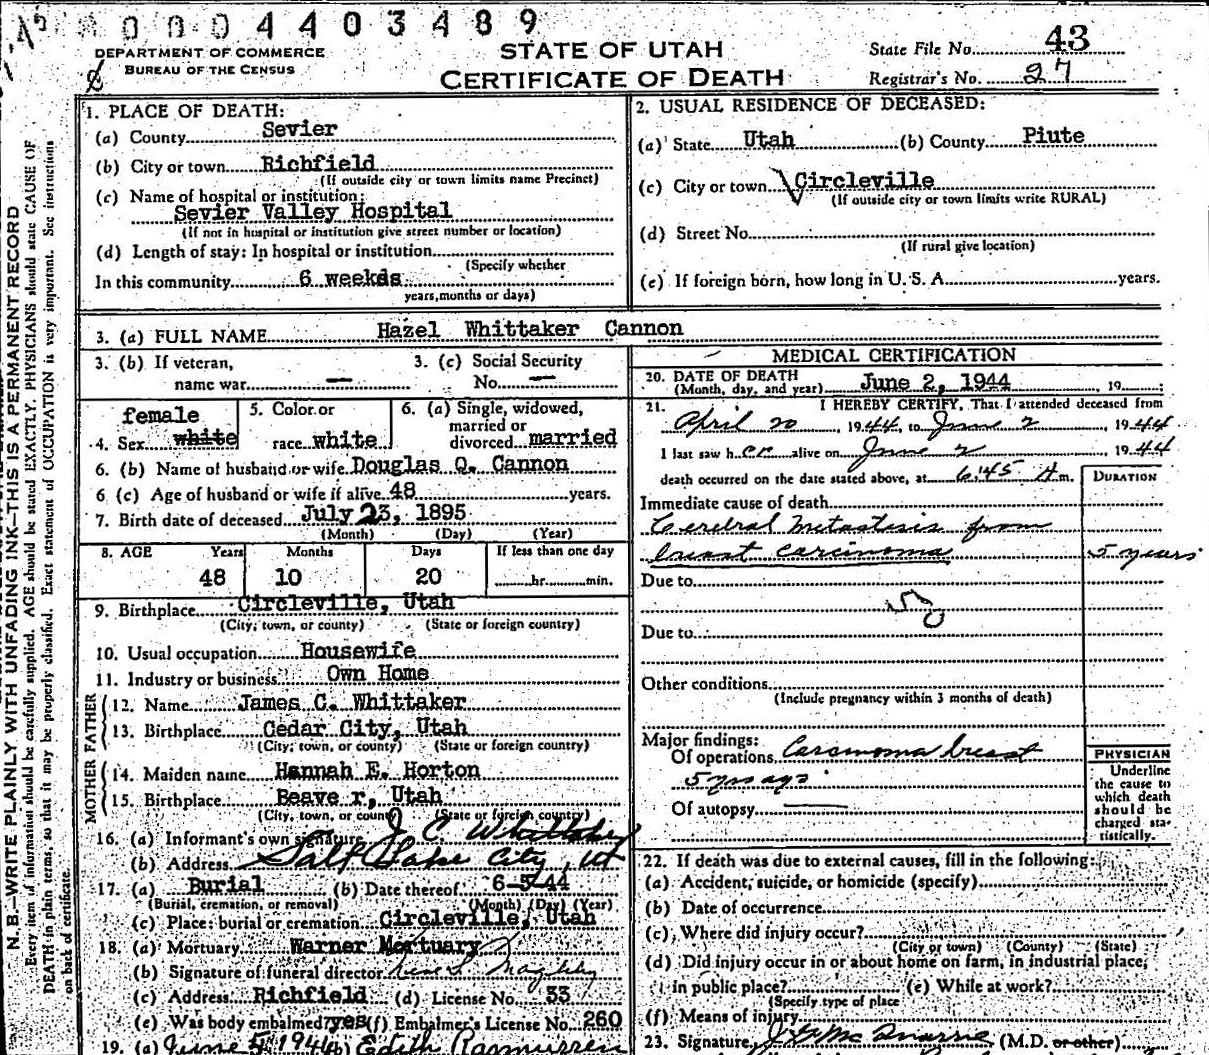 0004403489
DEPARTMENT OF COMMERCE
BUREAU OF THE CENSUS
STATE OF UTAH
CERTIFICATE OF DEATH
State File No. 43
Registrar's No. 27
N.B.—WRITE PLAINLY WITH UNFADING INK—THIS IS A PERMANENT RECORD
Every item of information should be carefully supplied. AGE should be stated EXACTLY. PHYSICIANS should state CAUSE OF
DEATH in plain terms, so that it may be properly classified. Exact statement of OCCUPATION is very important. See instructions
on back of certificate.
1. PLACE OF DEATH:
(a) County Sevier
(b) City or town Richfield
(If outside city or town limits name Precinct)
(c) Name of hospital or institution:
Sevier Valley Hospital
(If not in hospital or institution give street number or location)
(d) Length of stay: In hospital or institution
(Specify whether
In this community 6 weekds
years, months or days)
2. USUAL RESIDENCE OF DECEASED:
(a) State Utah (b) County Piute
(c) City or town Circleville
(If outside city or town limits write RURAL)
(d) Street No.
(If rural give location)
(e) If foreign born, how long in U. S. A. years.
3. (a) FULL NAME Hazel Whittaker Cannon
3. (b) If veteran,
name war —
3. (c) Social Security
No. —
female
4. Sex white
5. Color or
race white
6. (a) Single, widowed,
married or
divorced married
6. (b) Name of husband or wife Douglas Q. Cannon
6 (c) Age of husband or wife if alive 48 years.
7. Birth date of deceased July 23, 1895
(Month) (Day) (Year)
8. AGE Years Months Days If less than one day
48 10 20 hr. min.
9. Birthplace Circleville, Utah
(City, town, or county) (State or foreign country)
10. Usual occupation Housewife
11. Industry or business Own Home
FATHER
12. Name James C. Whittaker
13. Birthplace Cedar City, Utah
(City, town, or county) (State or foreign country)
MOTHER
14. Maiden name Hannah E. Horton
15. Birthplace Beave r, Utah
(City, town, or county) (State or foreign country)
16. (a) Informant's own signature J. C. Whittaker
(b) Address Salt Lake City, Ut
17. (a) Burial (b) Date thereof 6-5-44
(Burial, cremation, or removal) (Month) (Day) (Year)
(c) Place: burial or cremation Circleville, Utah
18. (a) Mortuary Warner Mortuary
(b) Signature of funeral director
(c) Address Richfield (d) License No. 33
(e) Was body embalmed? yes (f) Embalmer's License No. 260
19. (a) June 5 1944 (b) Edith Rasmussen
MEDICAL CERTIFICATION
20. DATE OF DEATH
(Month, day, and year) June 2, 1944, 19 ;
21. I HEREBY CERTIFY, That I attended deceased from
April 20, 1944, to June 2, 1944
I last saw her alive on June 2 1944
death occurred on the date stated above, at 6:45 A m.
DURATION
Immediate cause of death
Cerebral metastasis from
breast carcinoma 5 years
Due to
50
Due to
Other conditions
(Include pregnancy within 3 months of death)
Major findings:
Of operations Carcinoma breast
5 yrs ago
Of autopsy —
PHYSICIAN
Underline
the cause to
which death
should be
charged sta-
tistically.
22. If death was due to external causes, fill in the following:
(a) Accident, suicide, or homicide (specify)
(b) Date of occurrence
(c) Where did injury occur?
(City or town) (County) (State)
(d) Did injury occur in or about home on farm, in industrial place,
in public place? (e) While at work?
(Specify type of place
(f) Means of injury
23. Signature (M.D. or other)